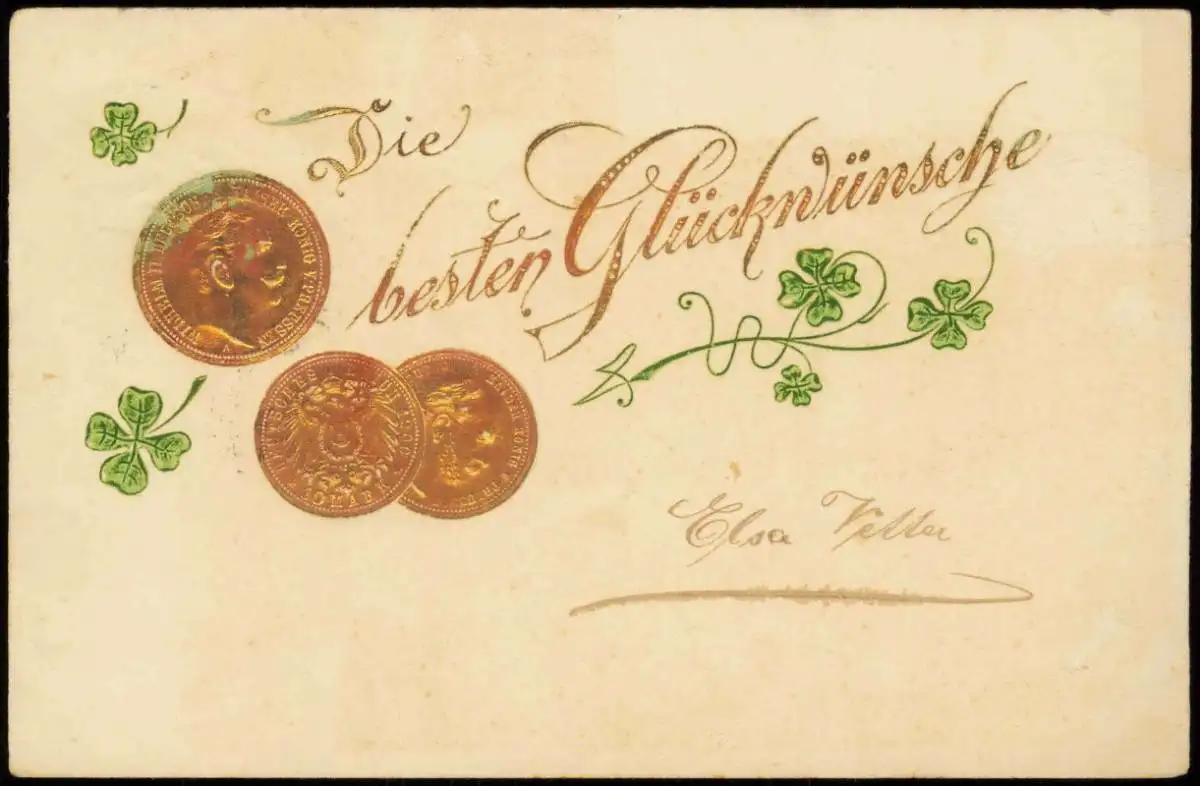 Die
besten Glückwünsche
WILHELM II DEUTSCHER KAISER KÖNIG V. PREUSSEN
A
DEUTSCHES 1900
10 MARK
Elsa Vetter